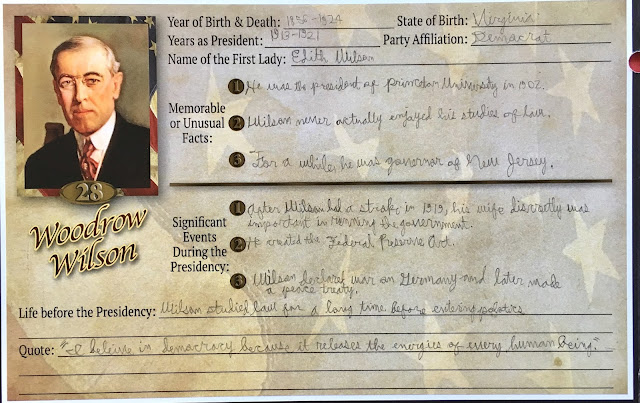 Year of Birth & Death: 1856-1924 State of Birth: Virginia
Years as President: 1913-1921 Party Affiliation: Democrat
Name of the First Lady: Edith Wilson
Memorable or Unusual Facts:
1 He was the president of princeton University in 1902.
2 Wilson never actually enjoyed his studies of law.
3 For a while, he was governor of New Jersey.
28
Woodrow
Wilson
Significant Events During the Presidency:
1 After Wilson had a stroke in 1919, his wife discreetly was
important in running the government.
2 He created the Federal Preserve Act.
3 Wilson declared war on Germany and later made
a peace treaty.
Life before the Presidency: Wilson studied law for a long time before entering politics
Quote: "I beleive in democracy because it releases the energies of every human being."